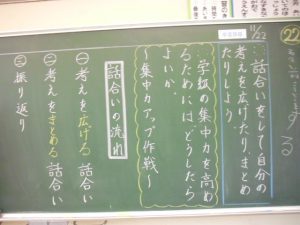 ㉒
する
11/22
学習課題
話合いをして、自分の
考えを広げたり、まとめ
たりしよう。
学級の集中力を高め
るためには、どうしたら
よいか。
〜集中力アップ作戦〜
話合いの流れ
一 考えを広げる話合い
二 考えをまとめる話合い
三 振り返り